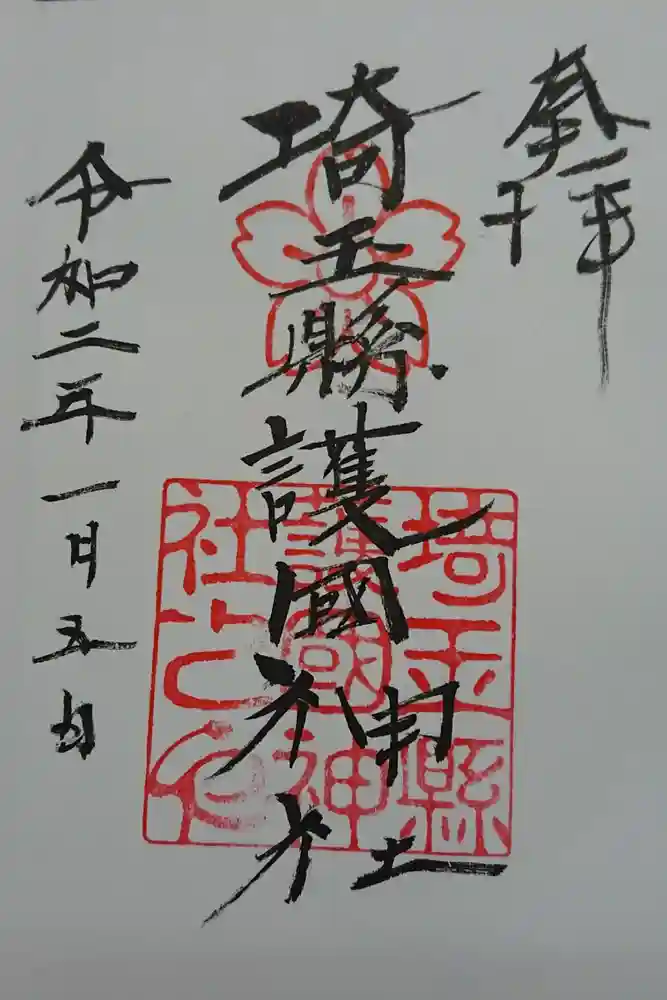 奉拝
埼玉縣護國神社
令和二年一月五日
埼玉縣
護國神
社之印